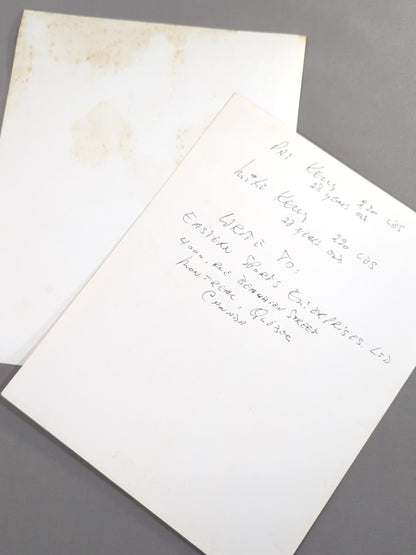 PAT KELLY 230 LBS
28 YEARS OLD
MIKE KELLY 290 LBS
28 YEARS OLD
WRITE TO:
EASTERN SPORTS ENTERPRISES. LTD
4000, RUE BEAUBIEN STREET
MONTREAL, QUEBEC
CANADA